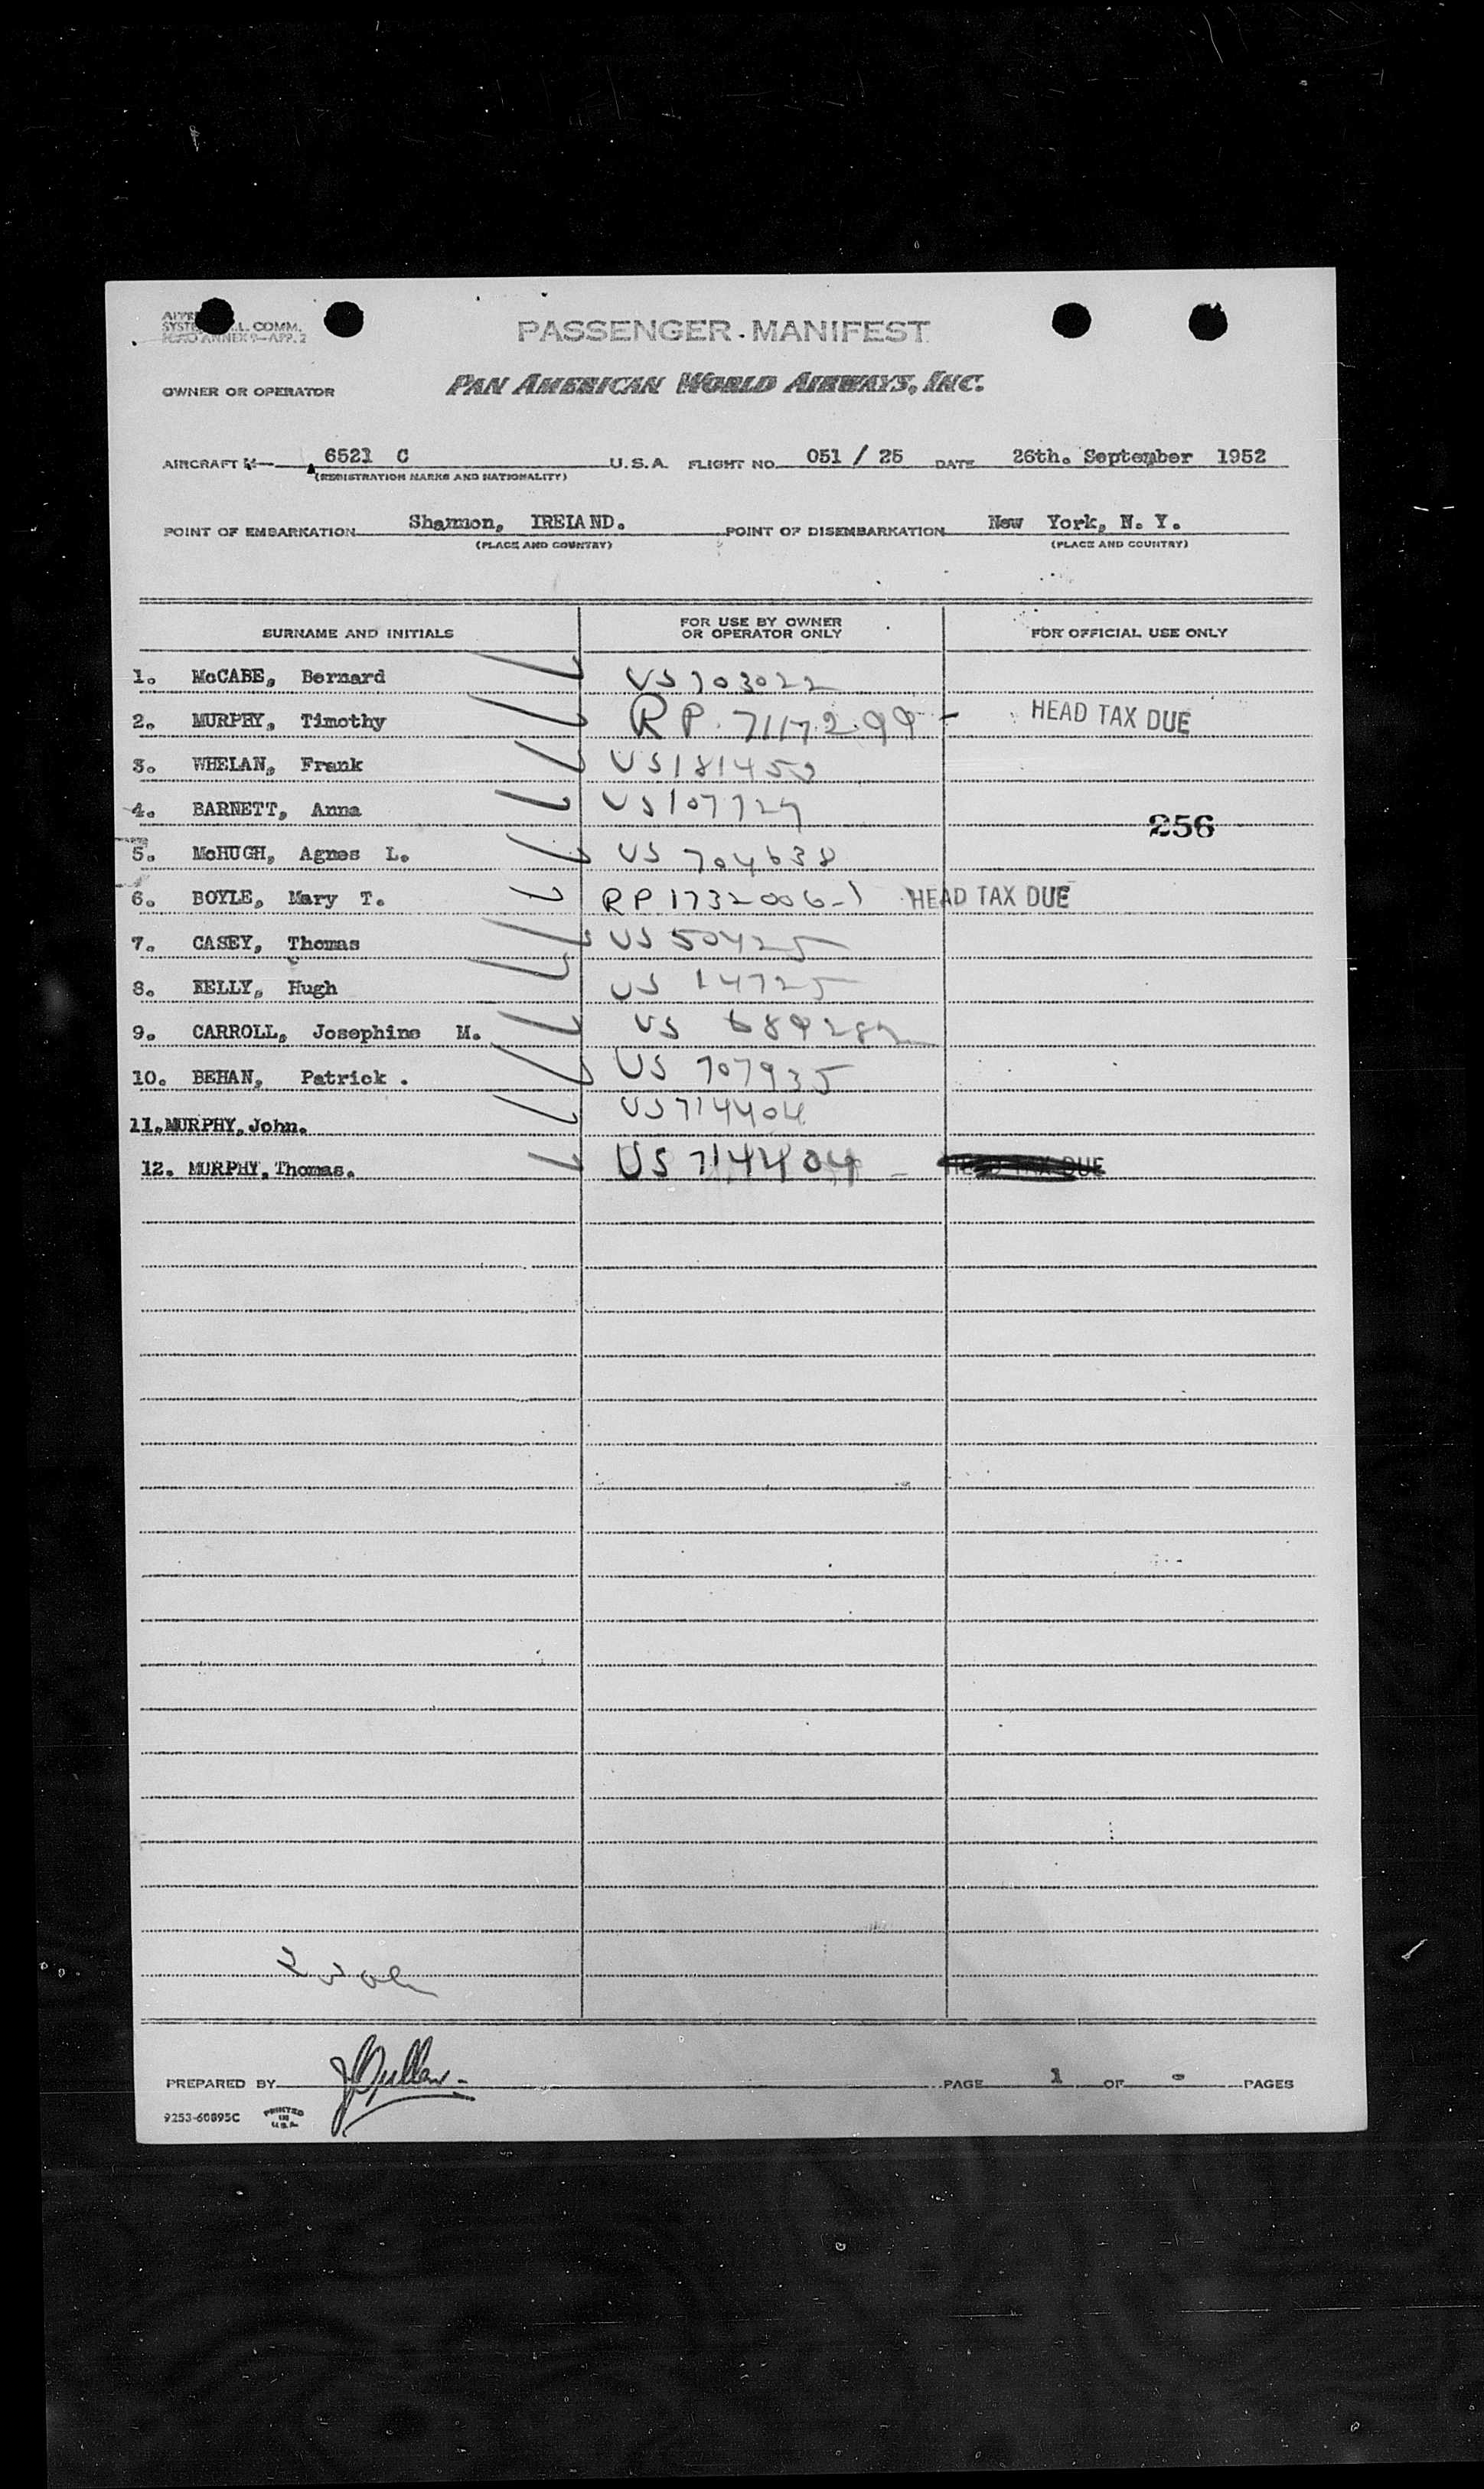 SYSTE L. COMM.
ICAO ANNEX 9—APP. 2
PASSENGER MANIFEST
OWNER OR OPERATOR PAN AMERICAN WORLD AIRWAYS, INC.
AIRCRAFT N— 6521 C U.S.A. FLIGHT NO. 051 / 25 DATE 26th. September 1952
(REGISTRATION MARKS AND NATIONALITY)
POINT OF EMBARKATION Shannon, IRELAND. POINT OF DISEMBARKATION New York, N. Y.
(PLACE AND COUNTRY) (PLACE AND COUNTRY)
SURNAME AND INITIALS FOR USE BY OWNER OR OPERATOR ONLY FOR OFFICIAL USE ONLY
1. McCABE, Bernard US 703022
2. MURPHY, Timothy RP. 7117299 - HEAD TAX DUE
3. WHELAN, Frank US 181450
4. BARNETT, Anna US 107727
256
5. McHUGH, Agnes L. US 704638
6. BOYLE, Mary T. RP 1732006-1 HEAD TAX DUE
7. CASEY, Thomas US 50425
8. KELLY, Hugh US 14725
9. CARROLL, Josephine M. US 689282
10. BEHAN, Patrick . US 707935
11. MURPHY, John. US 714404
12. MURPHY, Thomas. US 714404 - HEAD TAX DUE
PREPARED BY PAGE 1 OF - PAGES
9253-60895C PRINTED IN U.S.A.